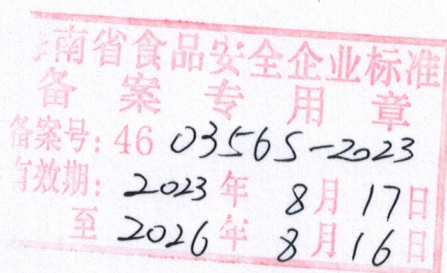 南省食品安全企业标准
备案专用章
备案号: 46 0356S-2023
有效期: 2023年8月17日
至 2026年8月16日